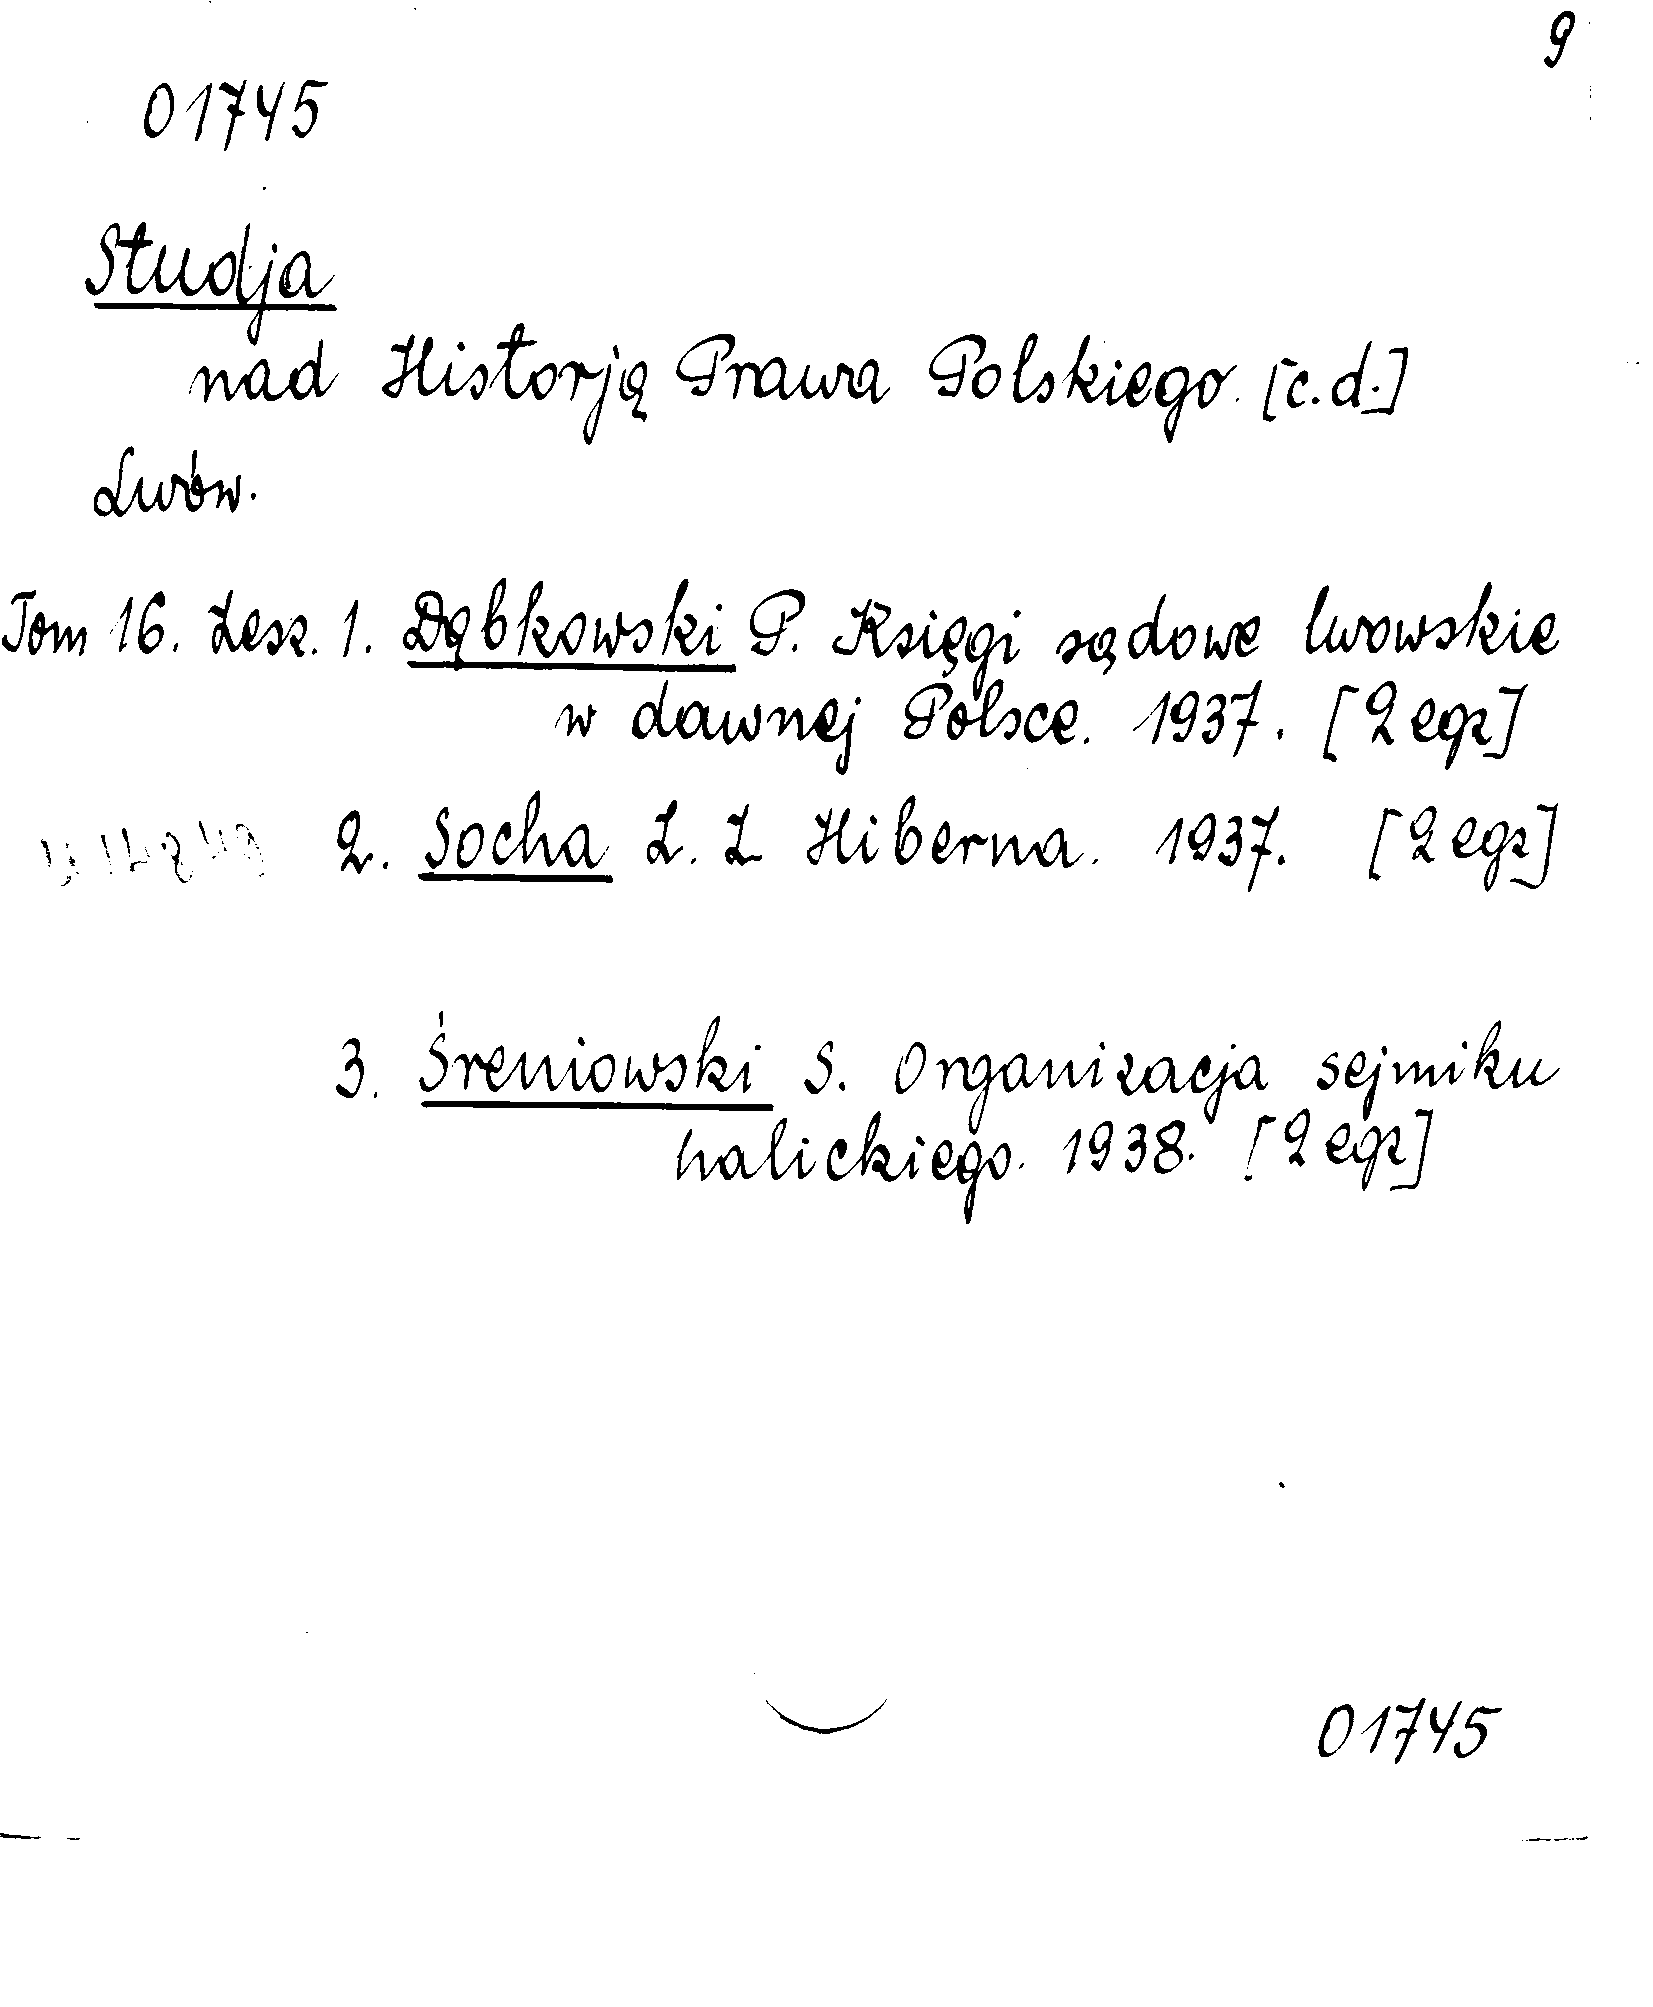 9
01745
Studja
nad Historją Prawa Polskiego. [c.d.]
Lwów.
Tom 16. Zesz. 1. Dąbkowski P. Księgi sądowe lwowskie
w dawnej Polsce. 1937. [2 egz]
2. Socha Z. Z Hiberna. 1937. [2 egz]
3. Śreniowski S. Organizacja sejmiku
halickiego. 1938. [2 egz]
01745